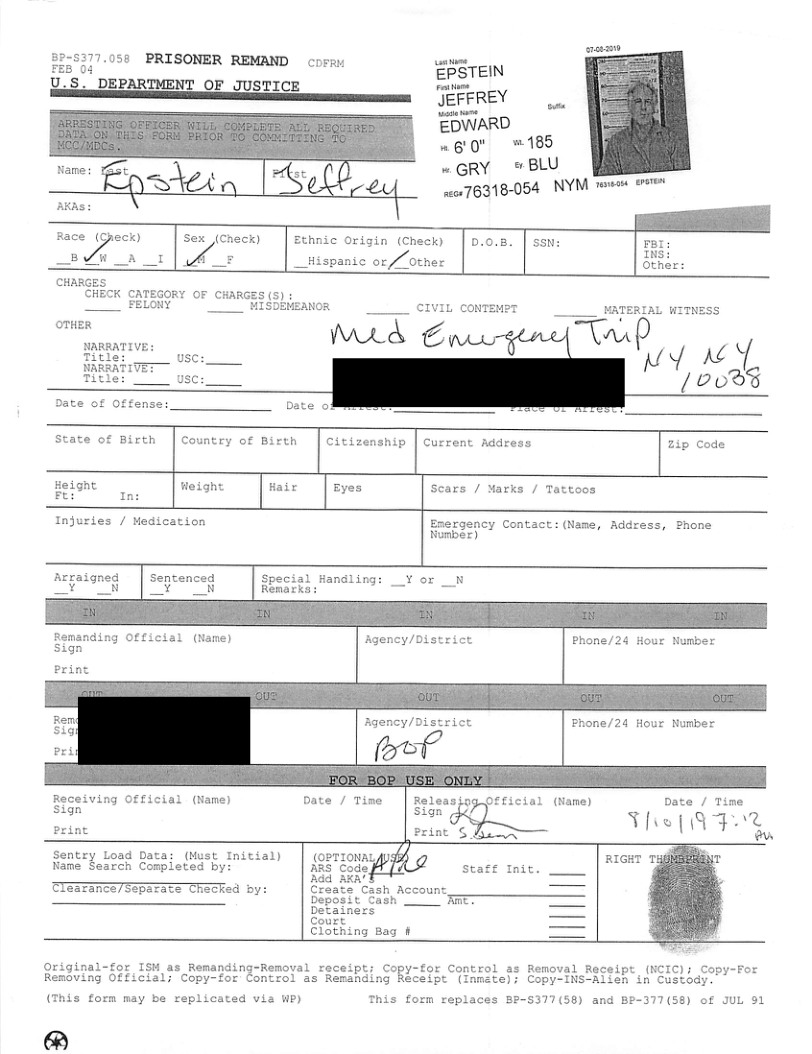 BP-S377.058 PRISONER REMAND CDFRM
FEB 04
U.S. DEPARTMENT OF JUSTICE
07-08-2019
Last Name
EPSTEIN
First Name
JEFFREY
Suffix
Middle Name
EDWARD
Ht. 6' 0" Wt. 185
Hr. GRY Ey. BLU
REG# 76318-054 NYM
76318-054 EPSTEIN
ARRESTING OFFICER WILL COMPLETE ALL REQUIRED
DATA ON THIS FORM PRIOR TO COMMITTING TO
MCC/MDCs.
Name: Last First
Epstein Jeffrey
AKAs:
Race (Check) Sex (Check) Ethnic Origin (Check) D.O.B. SSN: FBI:
INS:
__B __W __A __I __M __F __Hispanic or __Other Other:
CHARGES
CHECK CATEGORY OF CHARGES(S):
_____ FELONY _____ MISDEMEANOR _____ CIVIL CONTEMPT _____ MATERIAL WITNESS
OTHER
Med Emergency Trip
NARRATIVE:
Title: _____ USC:_____
NARRATIVE:
Title: _____ USC:_____
NY NY
10038
Date of Offense:______________ Date of Arrest:______________ Place of Arrest:______________
State of Birth Country of Birth Citizenship Current Address Zip Code
Height Weight Hair Eyes Scars / Marks / Tattoos
Ft: In:
Injuries / Medication Emergency Contact:(Name, Address, Phone
Number)
Arraigned Sentenced Special Handling: __Y or __N
__Y __N __Y __N Remarks:
IN IN IN IN IN
Remanding Official (Name) Agency/District Phone/24 Hour Number
Sign
Print
OUT OUT OUT OUT OUT
Agency/District Phone/24 Hour Number
BOP
FOR BOP USE ONLY
Receiving Official (Name) Date / Time Releasing Official (Name) Date / Time
Sign Sign 8/10/19 7:12
Print Print
Sentry Load Data: (Must Initial) (OPTIONAL USE) RIGHT THUMBPRINT
Name Search Completed by: ARS Code Staff Init. _____
Add AKA's
Clearance/Separate Checked by: Create Cash Account
Deposit Cash _____ Amt.
Detainers
Court
Clothing Bag #
Original-for ISM as Remanding-Removal receipt; Copy-for Control as Removal Receipt (NCIC); Copy-For
Removing Official; Copy-for Control as Remanding Receipt (Inmate); Copy-INS-Alien in Custody.
(This form may be replicated via WP) This form replaces BP-S377(58) and BP-377(58) of JUL 91